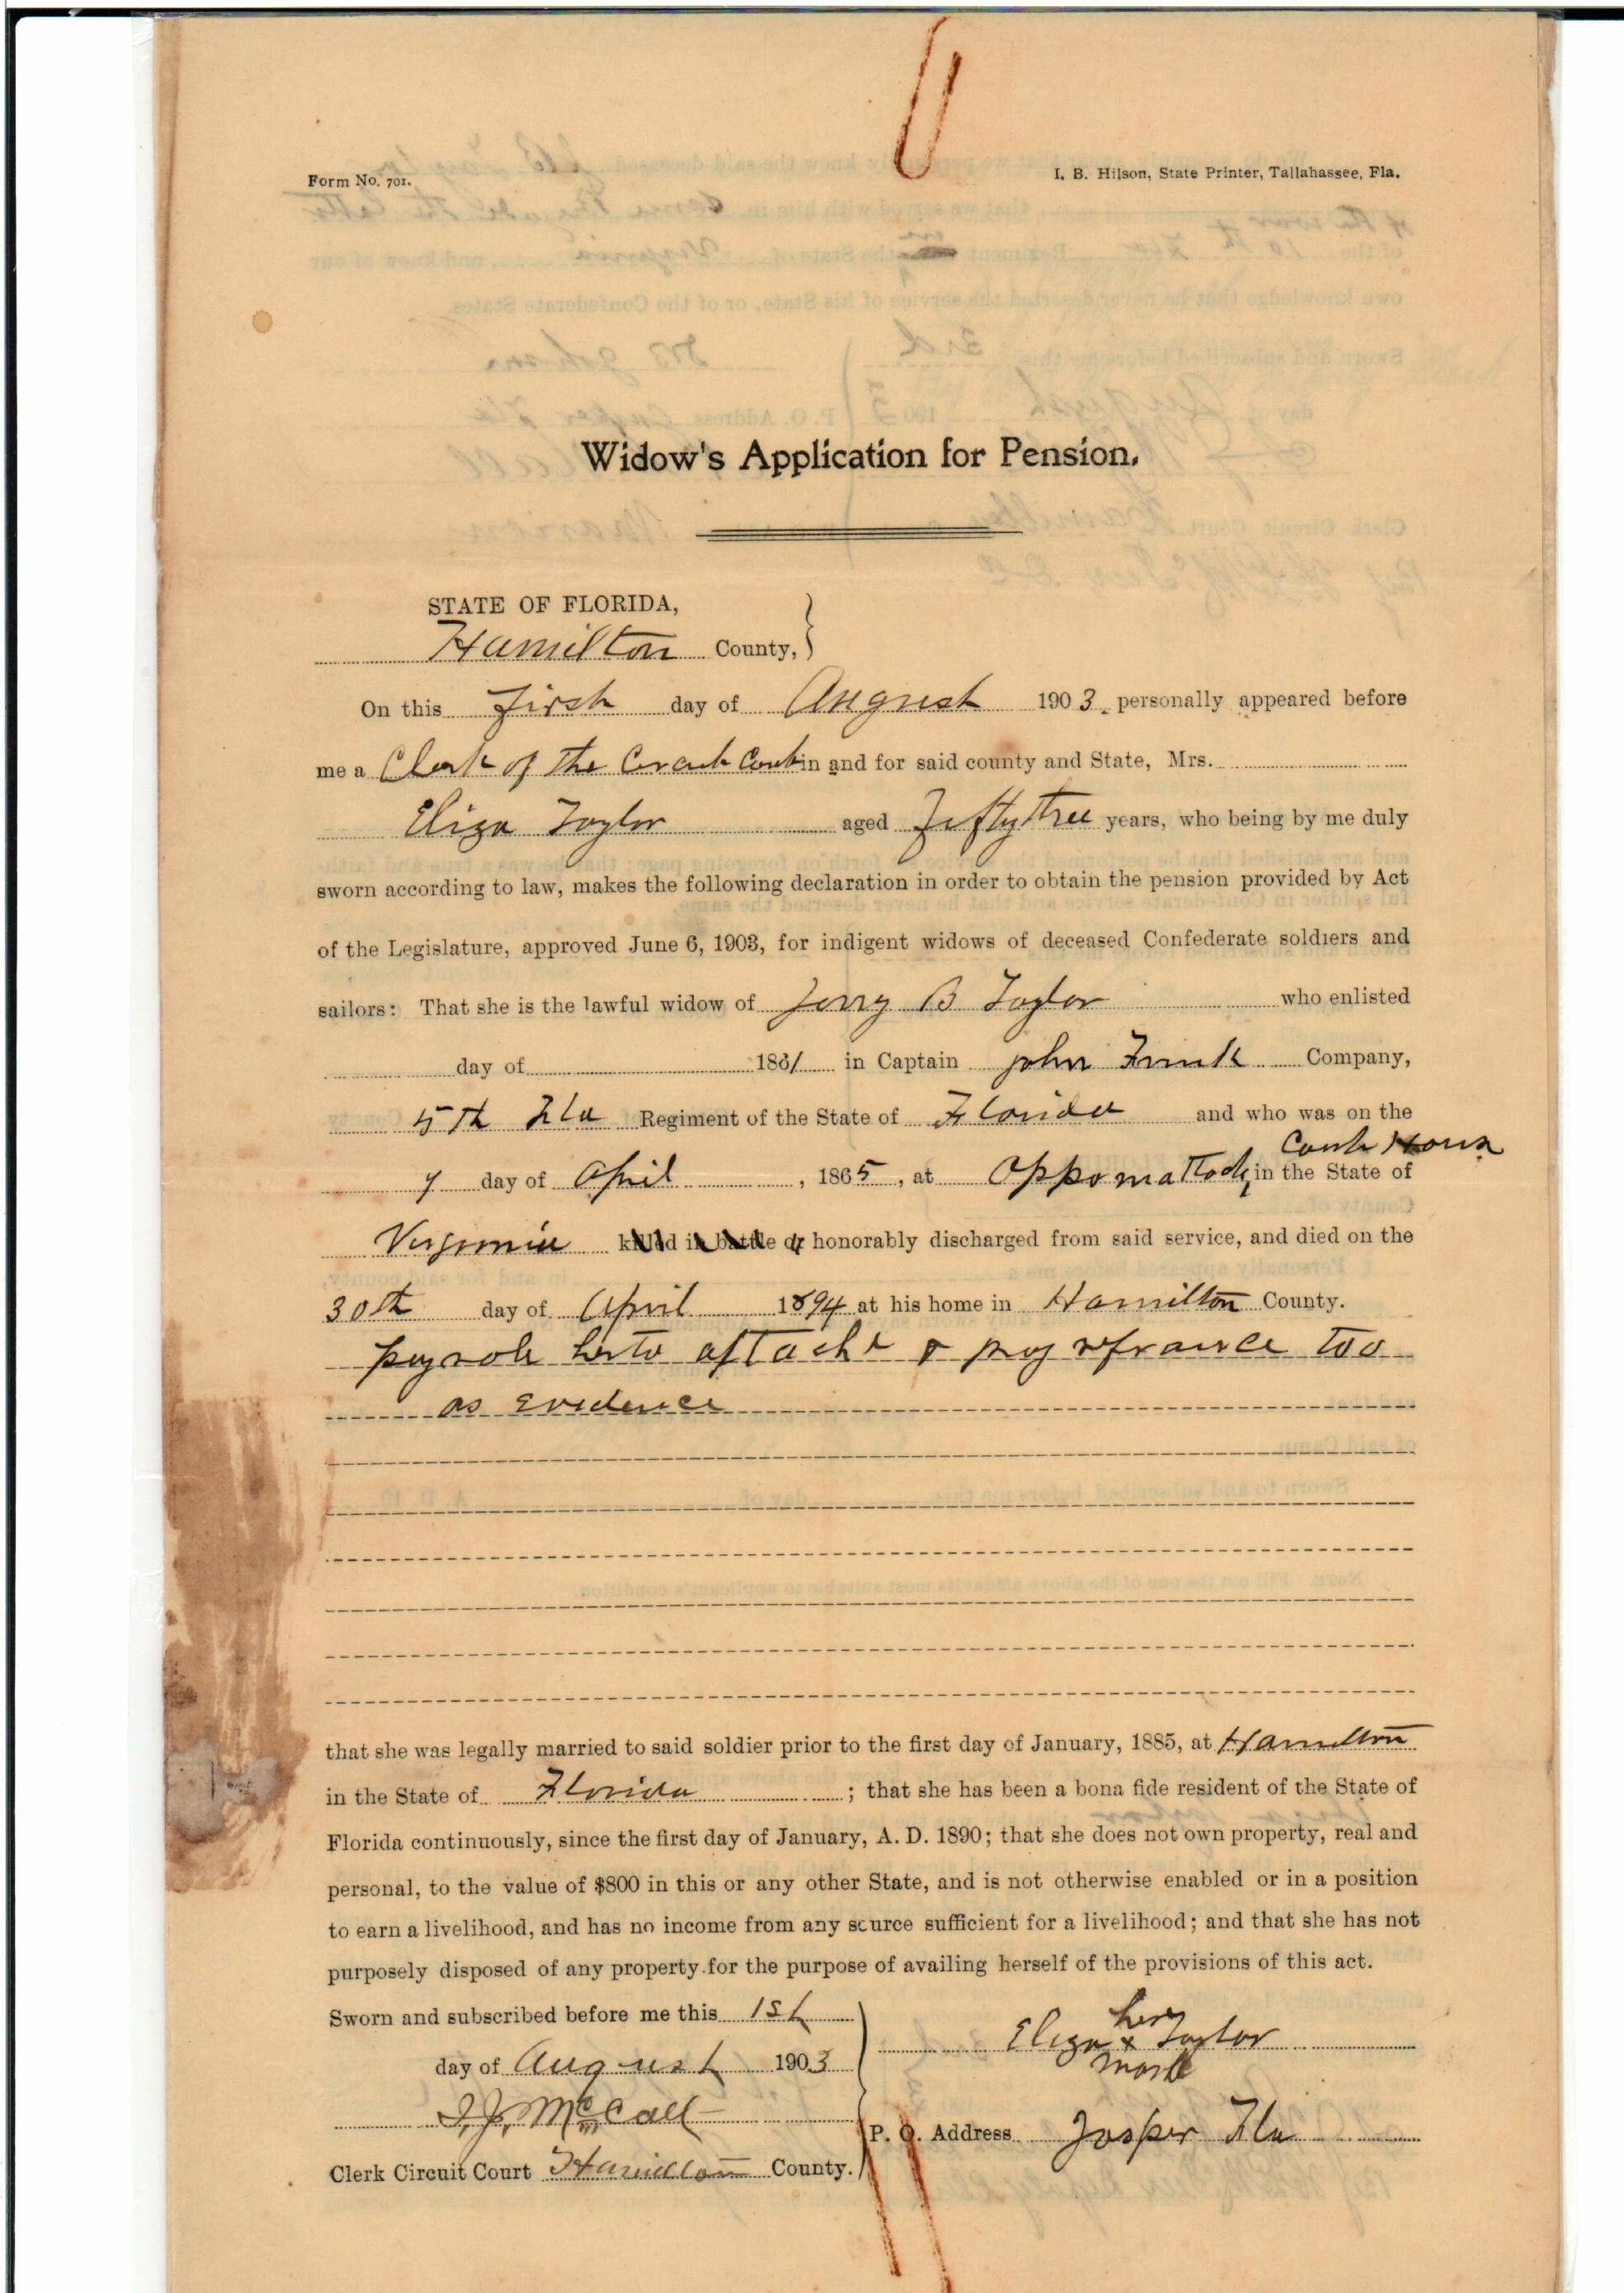 Form No. 701.
I. B. Hilson, State Printer, Tallahassee, Fla.
Widow's Application for Pension.
STATE OF FLORIDA,
Hamilton County,
On this first day of August 1903, personally appeared before
me a Clerk of the Circuit Court in and for said county and State, Mrs.
Eliza Taylor aged Fifty Three years, who being by me duly
sworn according to law, makes the following declaration in order to obtain the pension provided by Act
of the Legislature, approved June 6, 1903, for indigent widows of deceased Confederate soldiers and
sailors: That she is the lawful widow of Jerry B Taylor who enlisted
day of 1861 in Captain John Frink Company,
5th Fla Regiment of the State of Florida and who was on the
Court House
9 day of April, 1865, at Appomattox in the State of
Virginia killed in battle or honorably discharged from said service, and died on the
30th day of April 1894 at his home in Hamilton County.
attacht & refrance too
as evidence
that she was legally married to said soldier prior to the first day of January, 1885, at Hamilton
in the State of Florida; that she has been a bona fide resident of the State of
Florida continuously, since the first day of January, A. D. 1890; that she does not own property, real and
personal, to the value of $800 in this or any other State, and is not otherwise enabled or in a position
to earn a livelihood, and has no income from any source sufficient for a livelihood; and that she has not
purposely disposed of any property for the purpose of availing herself of the provisions of this act.
Sworn and subscribed before me this 1st
day of August 1903
J. J. McCall
Clerk Circuit Court Hamilton County.
her
Eliza x Taylor
mark
P. O. Address Jasper Fla